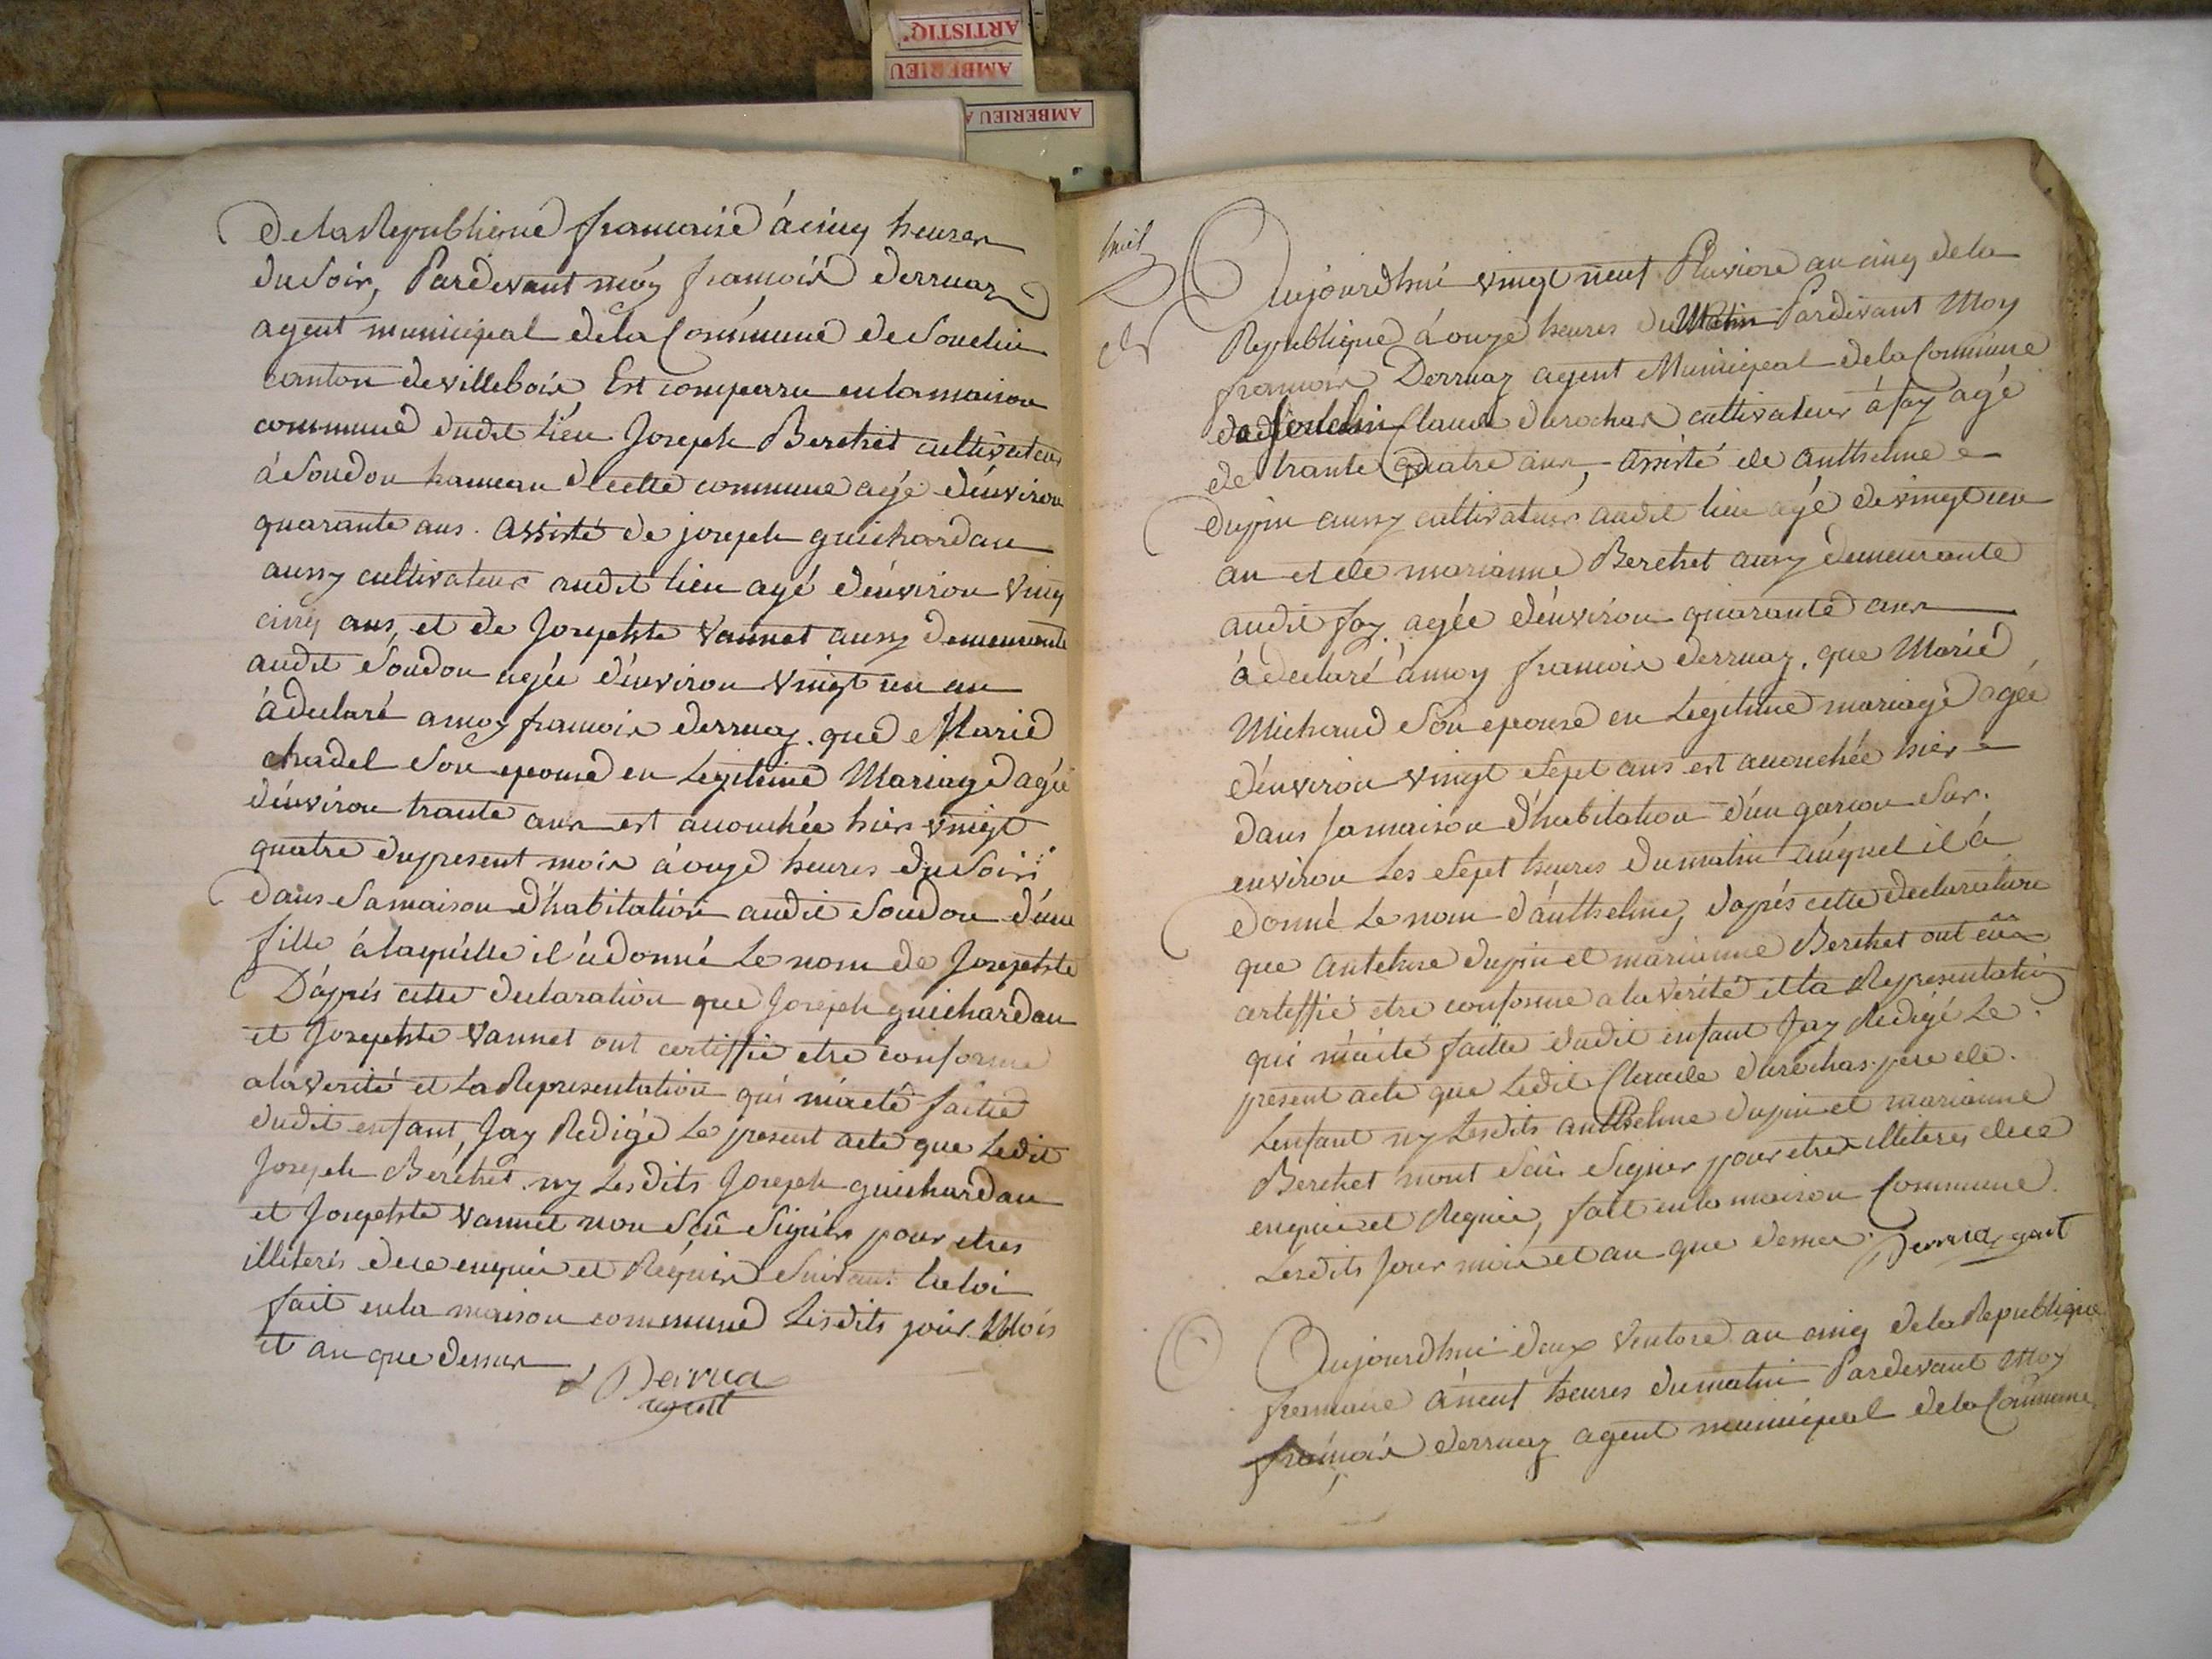 ARTISTIQ'
AMBERIEU
AMBERIEU
De la Republique francaise à cinq heures
du Soir, Pardevant moy francois Derruaz
agent municipal de la Commune de Souclin
canton de villebois Est comparu en la maison
commune dudit Lieu Joseph Berchet cultivateur
à Soudon hameau de cette commune agé d'environ
quarante ans. Assisté de joseph guichardan
aussy cultivateur audit lieu agé d'environ Vingt
cinq ans, et de Josephte Vannet aussy demeurante
audit Soudon agée d'environ vingt un an
à declaré a moy francois Derruaz. que Marie
chadel Son epouse en Legitime Mariage agée
d'environ trante ans est accouchée hier vingt
quatre du present mois à onze heures du Soir
dans Sa maison d'habitation audit Soudon d'une
fille à laquelle il a donné Le nom de Josephte
D'aprés cette declaration que Joseph guichardan
et Josephte Vannet ont certiffié etre conforme
a la verité et La Representation qui m'aeté faitte
dudit enfant, Jay Redigé Le present acte que Ledit
Joseph Berchet ny Lesdits Joseph guichardan
et Josephte Vannet non Scû Signer pour etres
illiterés dece enquis et Réquis Suivant la loi
fait en la maison commune Lesdits jour Mois
et an que dessus
Derrua
agent
huit
Aujourdhui vingt neuf Pluviose an cinq de la
Republique à onze heures du Matin Pardevant Moy
francois Derruaz agent Municipal de la Commune
de Souclin Claude durochas cultivateur à fay agé
de trante quatre ans, assisté de anthelme
dupin aussy cultivateur audit lieu agé de vingt un
an et de marianne Berchet aussy demeurante
audit fay agée d'environ quarante ans
à declaré à moy francois derruaz, que Marie
Michaud Son epouse en Legitime mariage agée
d'environ vingt Sept ans est accouchée hier
dans Sa maison d'habitation d'un garcon Sur
environ Les Sept heures du matin auquel il à
donné Le nom d'anthelme, d'aprés cette declaration
que Antelme dupin et marianne Berchet ont
certiffié etre conforme a la Verité et la Representation
qui m'aeté faitte dudit enfant Jay Redigé Le
present acte que Ledit Claude durochas pere de
Lenfant ny Lesdits anthelme dupin et marianne
Berchet n'ont Scû Signer pour etre illiteres dece
enquis et Requis, fait en la maison Commune
Lesdits Jour mois et an que dessus. Derrua agent
Aujourdhui deux Ventose an cinq de la Republique
francaise à neuf heures du matin Pardevant Moy
francois derruaz agent municipal de la Commune